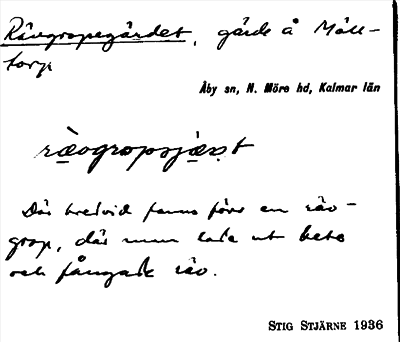 Rävgropegärdet, gärde å Möll-
torp
Åby sn, N. Möre hd, Kalmar län
rævgropsjæṣt
Där bredvid fanns förr en räv-
grop, där man lade ut bete
och fångade räv.
STIG STJÄRNE 1936